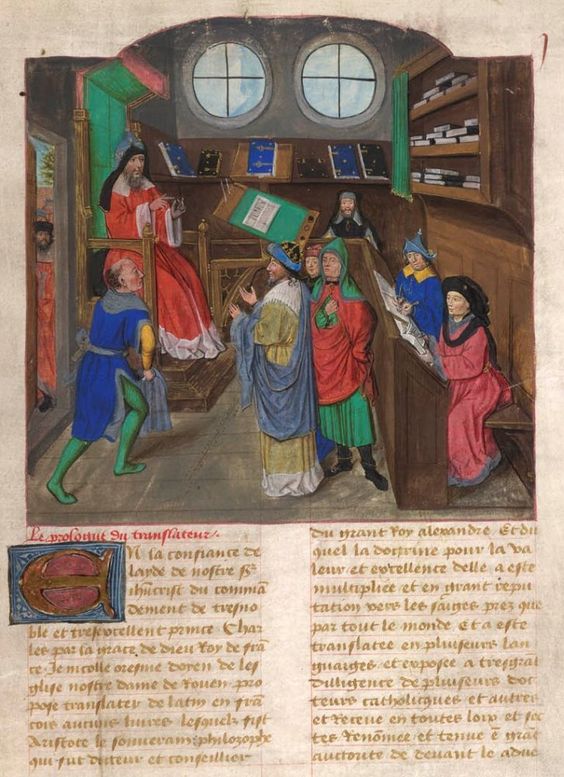 Le prologue du translateur.
En la confiance de
layde de nostre sr
ihucrist du commā
dement de tresno
ble et tresexcellent prince Char
les par la grace de dieu Roy de frā
ce Je nicolle oresme doyen de les
glise nostre dame de Rouen pro
pose translater de latin en frā
cois aucuns liures lesquelz fist
Aristote le souuerain philozophe
qui fut docteur et conseillier
du grant Roy alexandre Et du
quel la doctrine pour la va
leur et excellence delle a este
multipliee et en grant repu
tation vers les saiges prez que
par tout le monde Et a este
translatee en pluiseurs lan
guaiges et exposee a tresgrāt
dilligence de pluiseurs doc
teurs catholicques et autres
et Receue en toutes loix et sec
tes Renōmee et tenue ē grāt
auctorite de deuant le adue